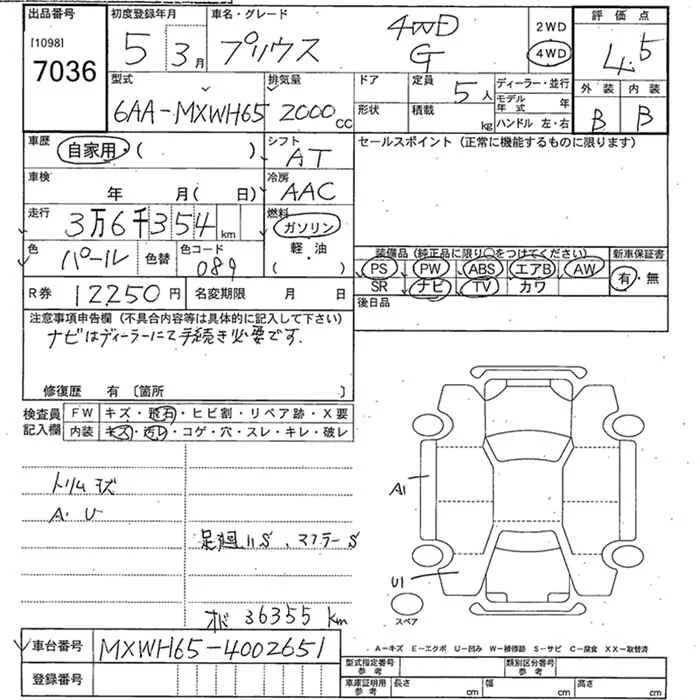 出品番号 初度登録年月 車名・グレード 評価点
[1098]
7036
5 3月 プリウス 4WD G
2WD 4WD
4.5
型式 排気量 ドア 定員 5人 ディーラー・並行 外装 内装
6AA-MXWH65 2000cc 形状 積載 kg モデル年式 年 B B
ハンドル 左・右
車歴 自家用・( ) シフト AT セールスポイント (正常に機能するものに限ります)
車検 年 月( 日) 冷房 AAC
走行 3万6千354km 燃料 ガソリン
軽・油
( ・ )
色 パール 色替 色コード 089
装備品 (純正品に限り〇をつけてください) 新車保証書
PS PW ABS エアB AW 有・無
SR ナビ TV カワ
R券 12250円 名変期限 月 日 後日品
注意事項申告欄 (不具合内容等は具体的に記入して下さい)
ナビはディーラーにて手続き必要です.
修復歴 有 〔箇所 〕
検査員 FW キズ・飛石・ヒビ割・リペア跡・X要
記入欄 内装 キズ・汚レ・コゲ・穴・スレ・キレ・破レ
トリムキズ
A・U
足廻りS、マフラーS
オド 36355 km
A1
U1
スペア
A－キズ E－エクボ U－凹み W－補修跡 S－サビ C－腐食 XX－取替済
車台番号 MXWH65-4002651
登録番号
型式指定番号 参考 類別区分番号 参考
車庫証明用 参考 長さ cm 幅 cm 高さ cm